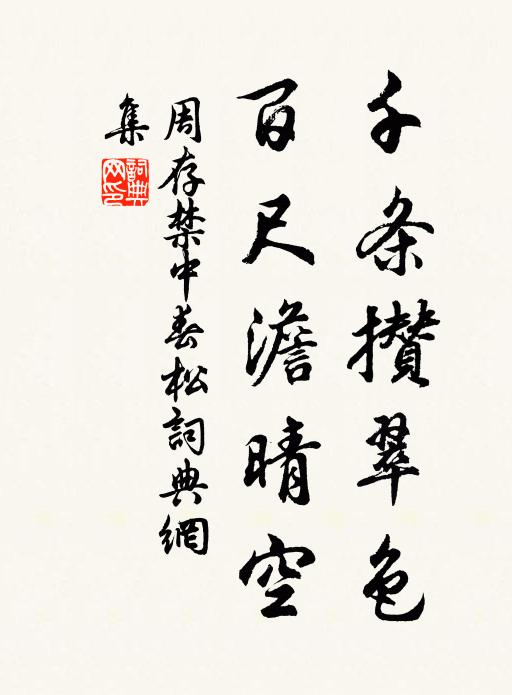 千条攒翠色
百尺澹晴空
周存禁中春松詞典網
集
詞典網印